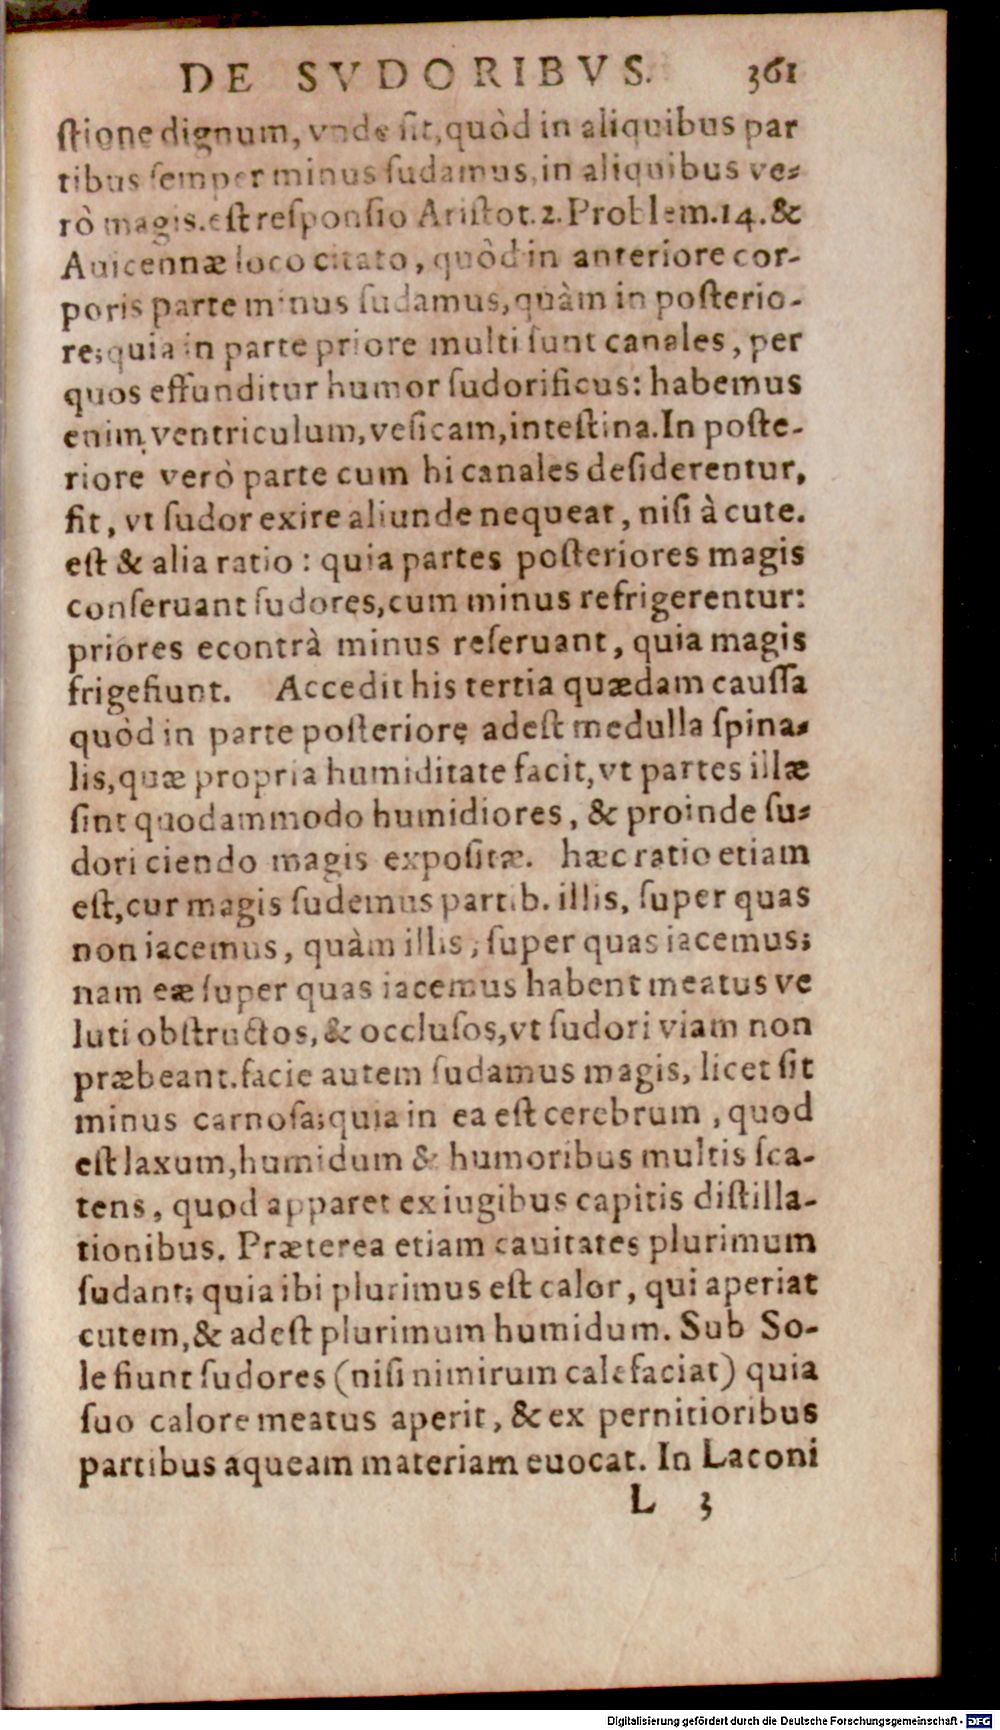 DE SVDORIBVS. 361
ſtione dignum, vnde fit, quòd in aliquibus par
tibus ſemper minus ſudamus, in aliquibus ve-
rò magis. eſt reſponſio Ariſtot. 2. Problem. 14. &
Auicennæ loco citato, quòd in anteriore cor-
poris parte minus ſudamus, quàm in poſterio-
re; quia in parte priore multi ſunt canales, per
quos effunditur humor ſudorificus: habemus
enim ventriculum, veſicam, inteſtina. In poſte-
riore verò parte cum hi canales deſiderentur,
fit, vt ſudor exire aliunde nequeat, niſi à cute.
eſt & alia ratio: quia partes poſteriores magis
conſeruant ſudores, cum minus refrigerentur:
priores econtrà minus reſeruant, quia magis
frigefiunt. Accedit his tertia quædam cauſſa
quòd in parte poſteriorę adeſt medulla ſpina-
lis, quæ propria humiditate facit, vt partes illæ
ſint quodammodo humidiores, & proinde ſu-
dori ciendo magis expoſitæ. hæc ratio etiam
eſt, cur magis ſudemus partib. illis, ſuper quas
non iacemus, quàm illis, ſuper quas iacemus;
nam eæ ſuper quas iacemus habent meatus ve
luti obſtructos, & occluſos, vt ſudori viam non
præbeant. facie autem ſudamus magis, licet ſit
minus carnoſa; quia in ea eſt cerebrum, quod
eſt laxum, humidum & humoribus multis ſca-
tens, quod apparet ex iugibus capitis diſtilla-
tionibus. Præterea etiam cauitates plurimum
ſudant; quia ibi plurimus eſt calor, qui aperiat
cutem, & adeſt plurimum humidum. Sub So-
le fiunt ſudores (niſi nimirum calefaciat) quia
ſuo calore meatus aperit, & ex pernitioribus
partibus aqueam materiam euocat. In Laconi
L 3
Digitalisierung gefördert durch die Deutsche Forschungsgemeinschaft - DFG